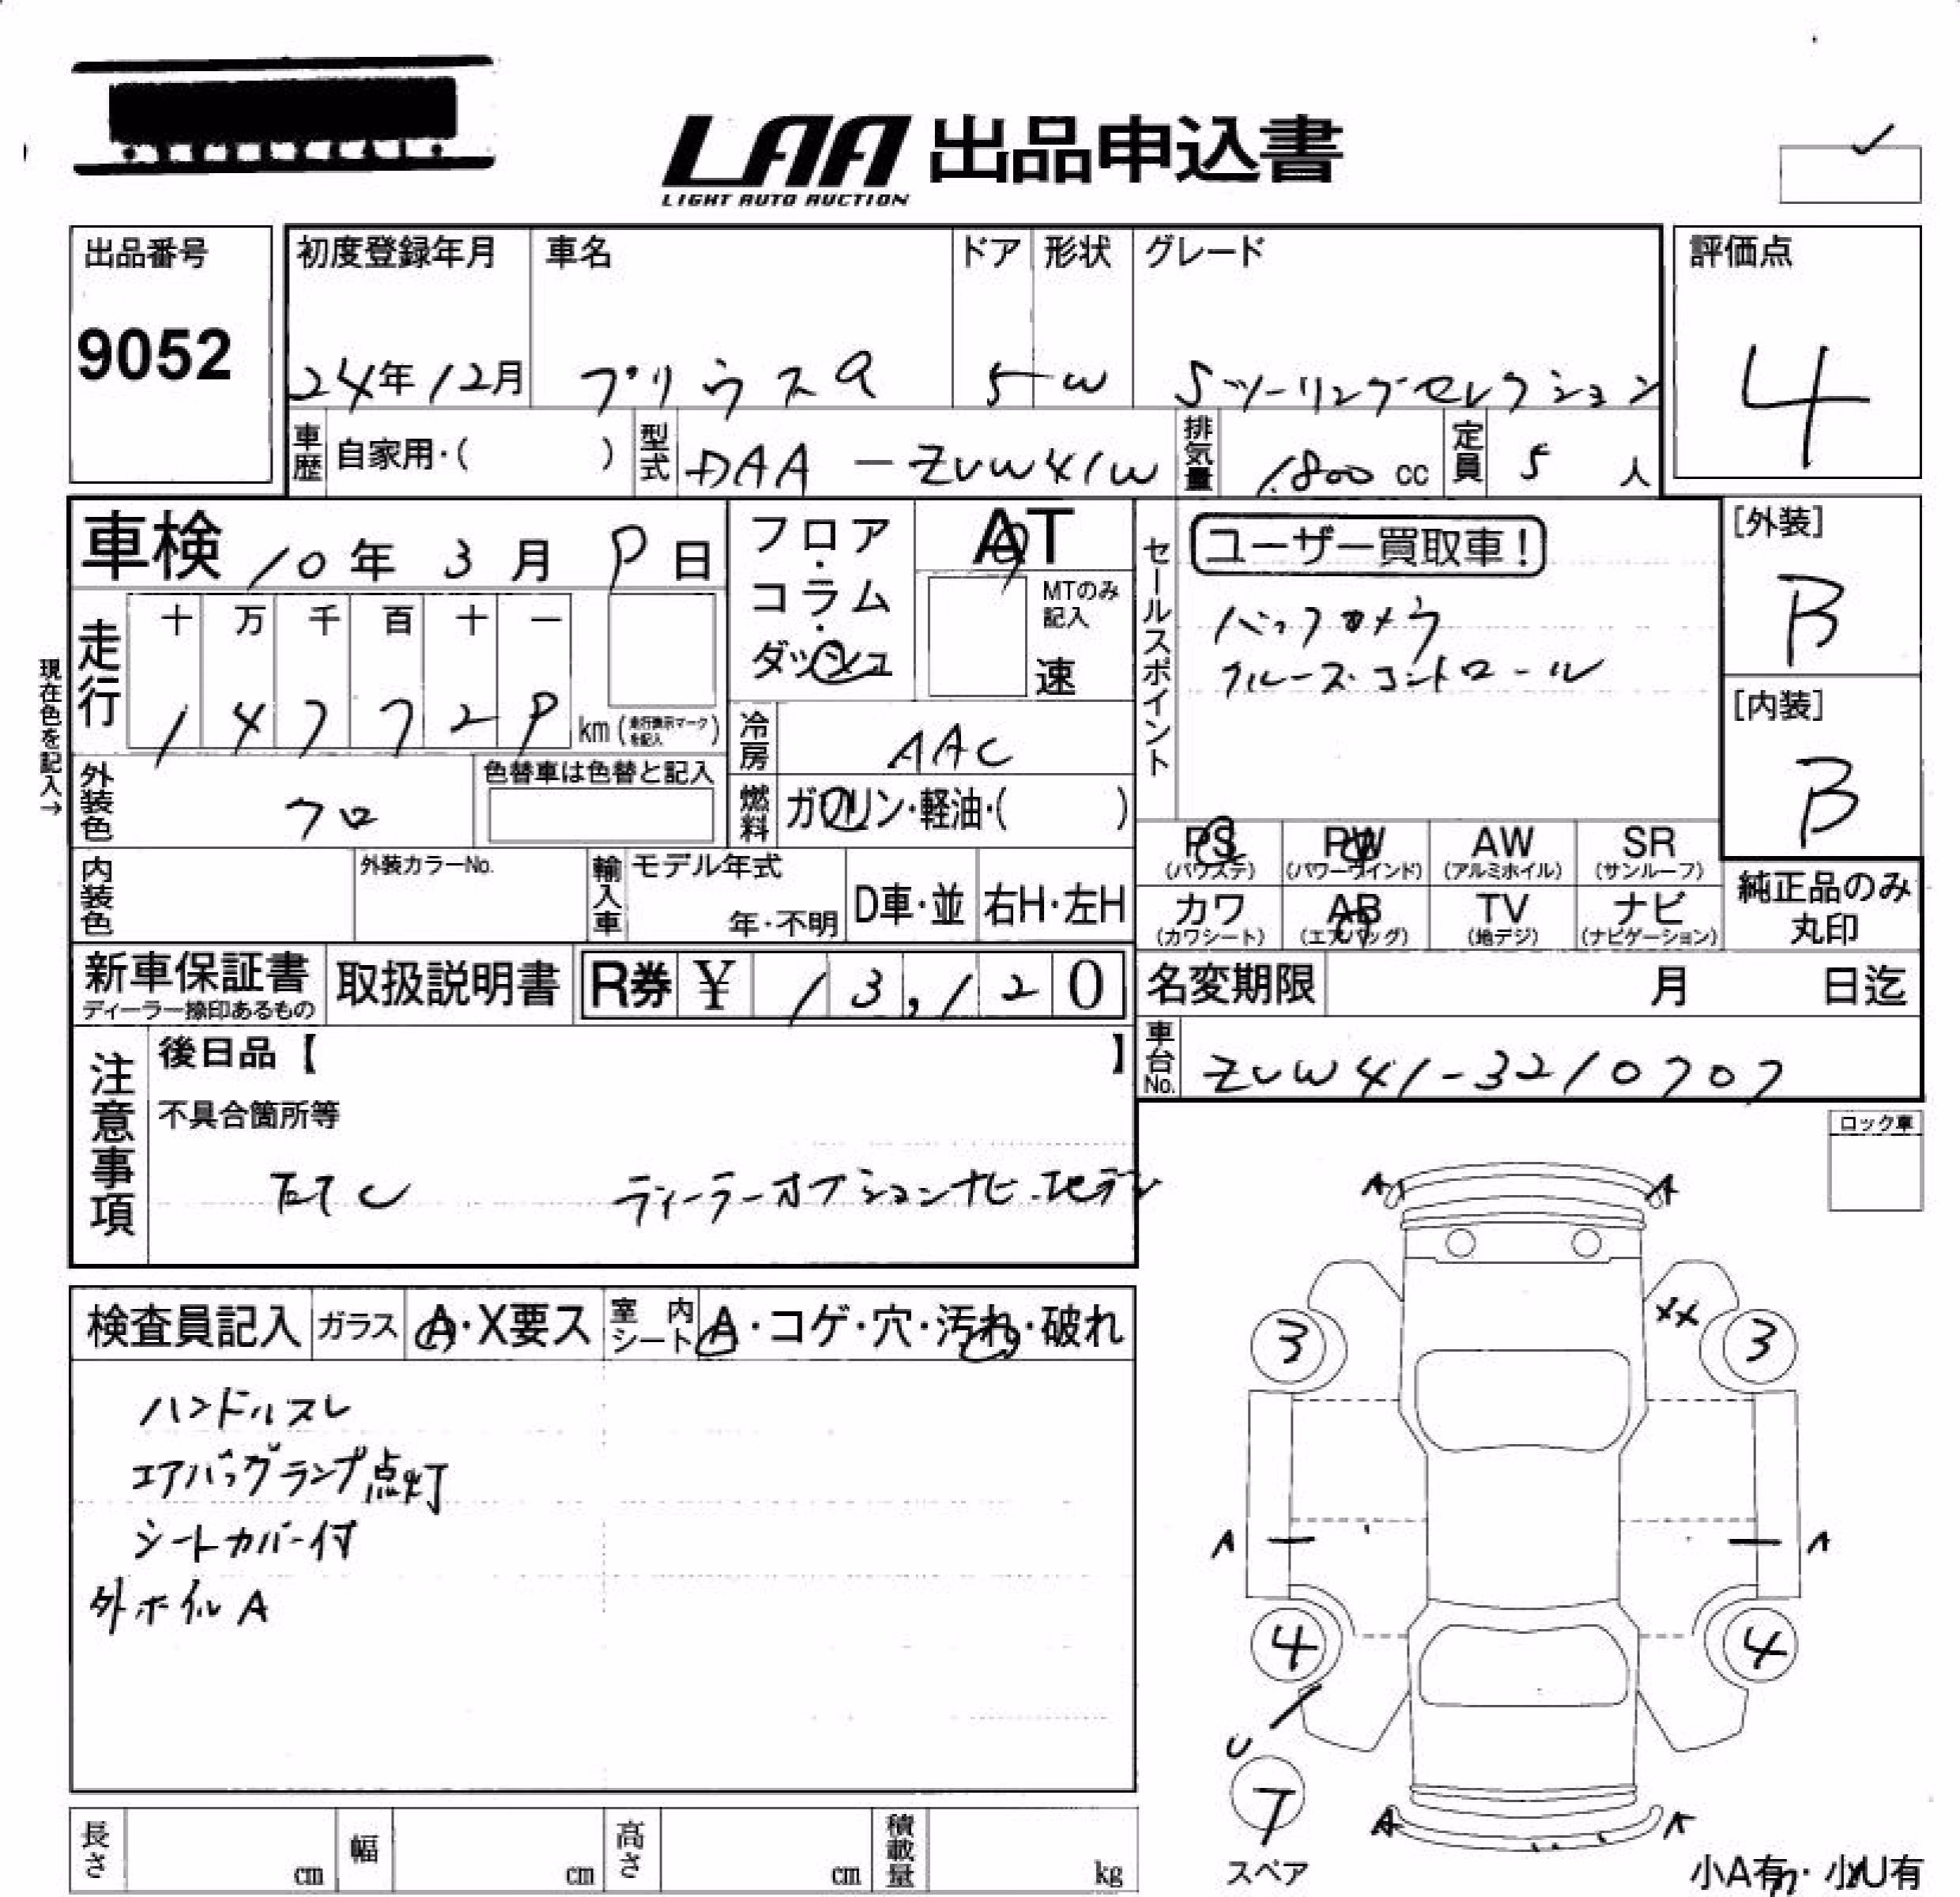 LAA 出品申込書
LIGHT AUTO AUCTION
出品番号
9052
初度登録年月
24年12月
車名
プリウスα
ドア
5
形状
W
グレード
Sツーリングセレクション
評価点
4
車歴
自家用・( )
型式
DAA-ZVW41W
排気量
1800 cc
定員
5 人
車検 10年 3月 9日
フロア・コラム・ダッシュ
AT
MTのみ記入
速
現在色を記入→
走行
十 万 千 百 十 一
1 4 7 7 2 9 km (走行表示マークを記入)
冷房
AAC
外装色
クロ
色替車は色替と記入
燃料
ガソリン・軽油・( )
内装色
外装カラーNo.
輸入車
モデル年式
年・不明
D車・並
右H・左H
セールスポイント
ユーザー買取車!
バックカメラ
クルーズコントロール
[外装]
B
[内装]
B
PS (パワステ) PW (パワーウインド) AW (アルミホイル) SR (サンルーフ)
カワ (カワシート) AB (エアバッグ) TV (地デジ) ナビ (ナビゲーション)
純正品のみ丸印
新車保証書
ディーラー捺印あるもの
取扱説明書
R券 ¥ 13,120
名変期限 月 日迄
車台No.
ZVW41-3210707
注意事項
後日品【 】
不具合箇所等
ETC ディーラーオプションナビ・地デジ
ロック車
検査員記入
ガラス A・X要ス
室内シート A・コゲ・穴・汚れ・破れ
ハンドルスレ
エアバッグランプ点灯
シートカバー付
外ホイルA
A A
XX
3 3
A A
4 4
U
7
A A
スペア
小A有・小U有
長さ cm
幅 cm
高さ cm
積載量 kg